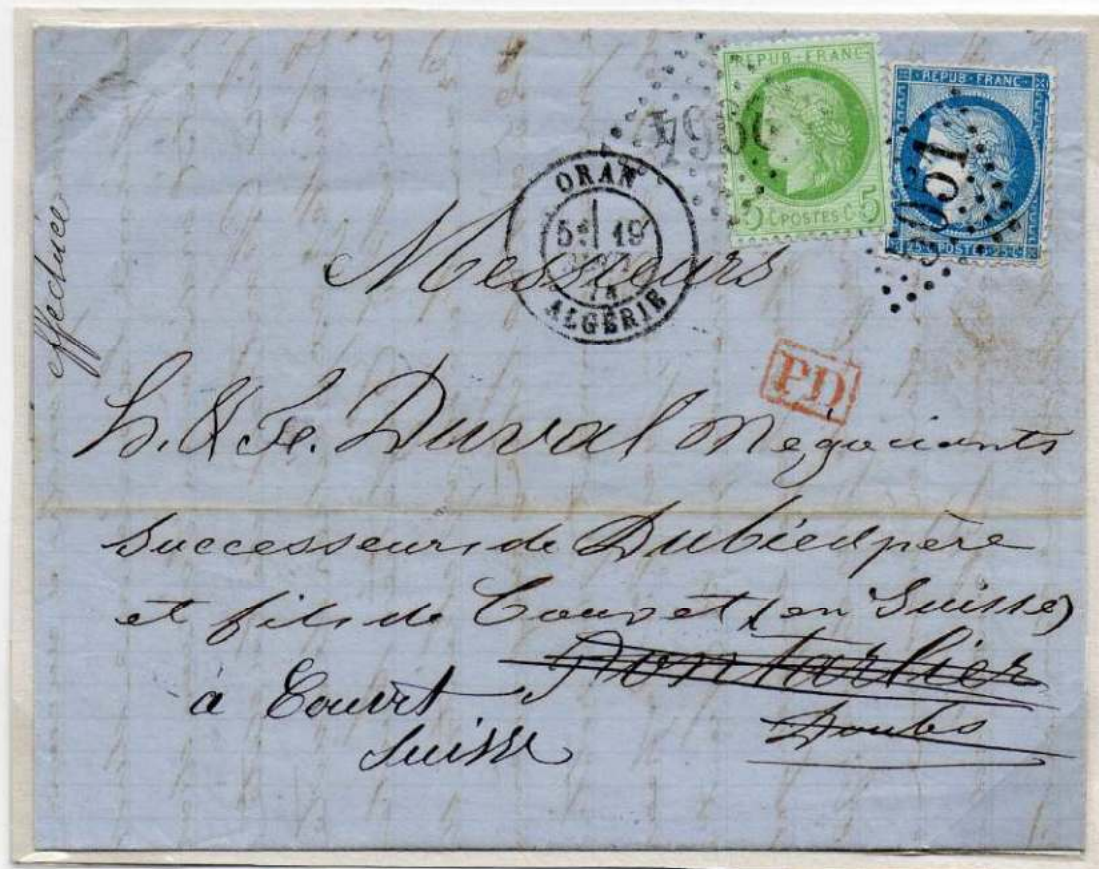 REPUB·FRANC·
5 C. POSTES C. 5
REPUB·FRANC·
25 C POSTES 25 C
5051
ORAN
5E 19
74
ALGÉRIE
PD
effectuée
Messieurs
& Fe. Duval Négociants
Successeurs de Dubied père
et fils de Couvet (en Suisse)
Pontarlier
Doubs
à Couvet
Suisse